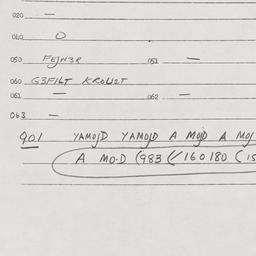 020 —
040 O
050 FEJN3R 051 —
060 G3FILT KROUZT
061 — 062 —
063 —
901 YAMOJD YAMOJD A MOJD A MOJ
A MO-D (983 (/160180 (15